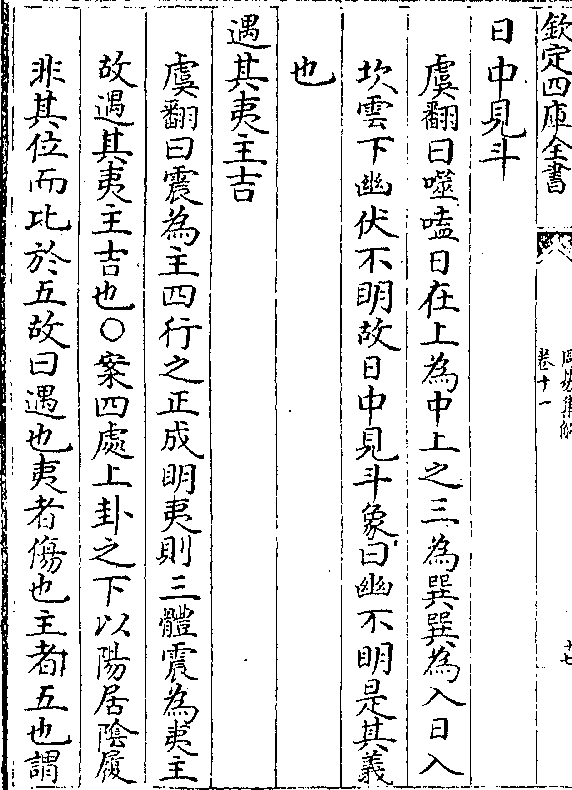 欽定四庫全書
周易集解
卷十一
十七
日中見斗
虞翻曰噬嗑日在上為中上之三為巽巽為入日入
坎雲下幽伏不明故日中見斗象曰幽不明是其義
也
遇其夷主吉
虞翻曰震為主四行之正成明夷則三體震為夷主
故遇其夷主吉也○案四處上卦之下以陽居陰履
非其位而比於五故曰遇也夷者傷也主者五也謂